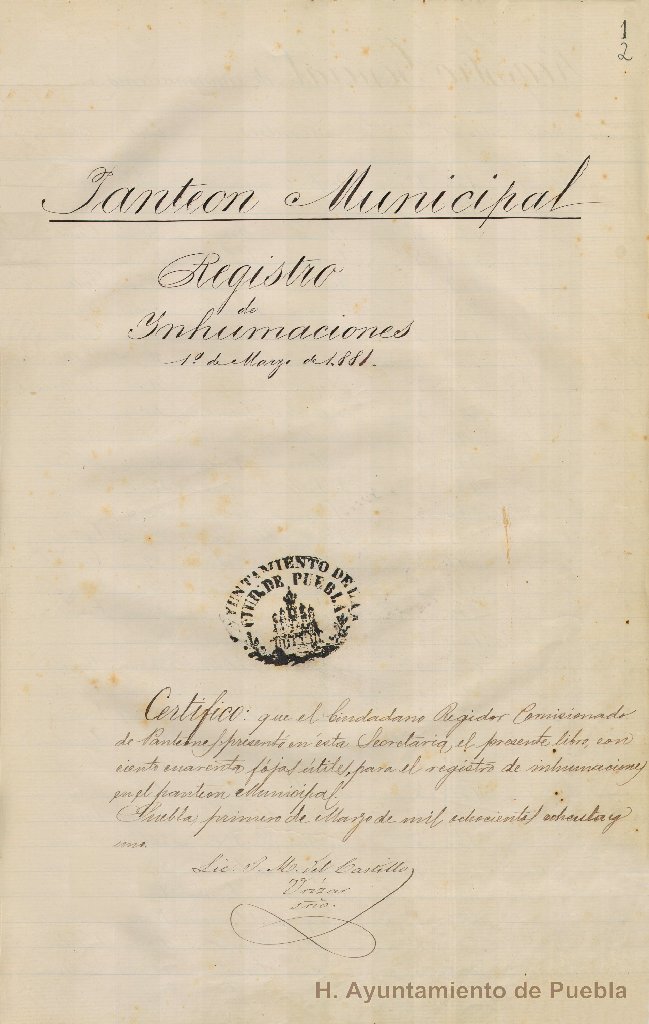 1
2
Panteon Municipal
Registro
de
Inhumaciones
1º de Marzo de 1,881.
AYUNTAMIENTO DE LA
CIUD. DE PUEBLA
Certifico: que el Ciudadano Regidor Comisionado
de Panteones, presentó en esta Secretaria, el presente libro, con
ciento cuarenta fojas útiles, para el registro de inhumaciones
en el panteon Municipal.
Puebla, primero de Marzo de mil ochocientos ochenta y
uno.
Lic. S. M. del Castillo
Srio.
H. Ayuntamiento de Puebla